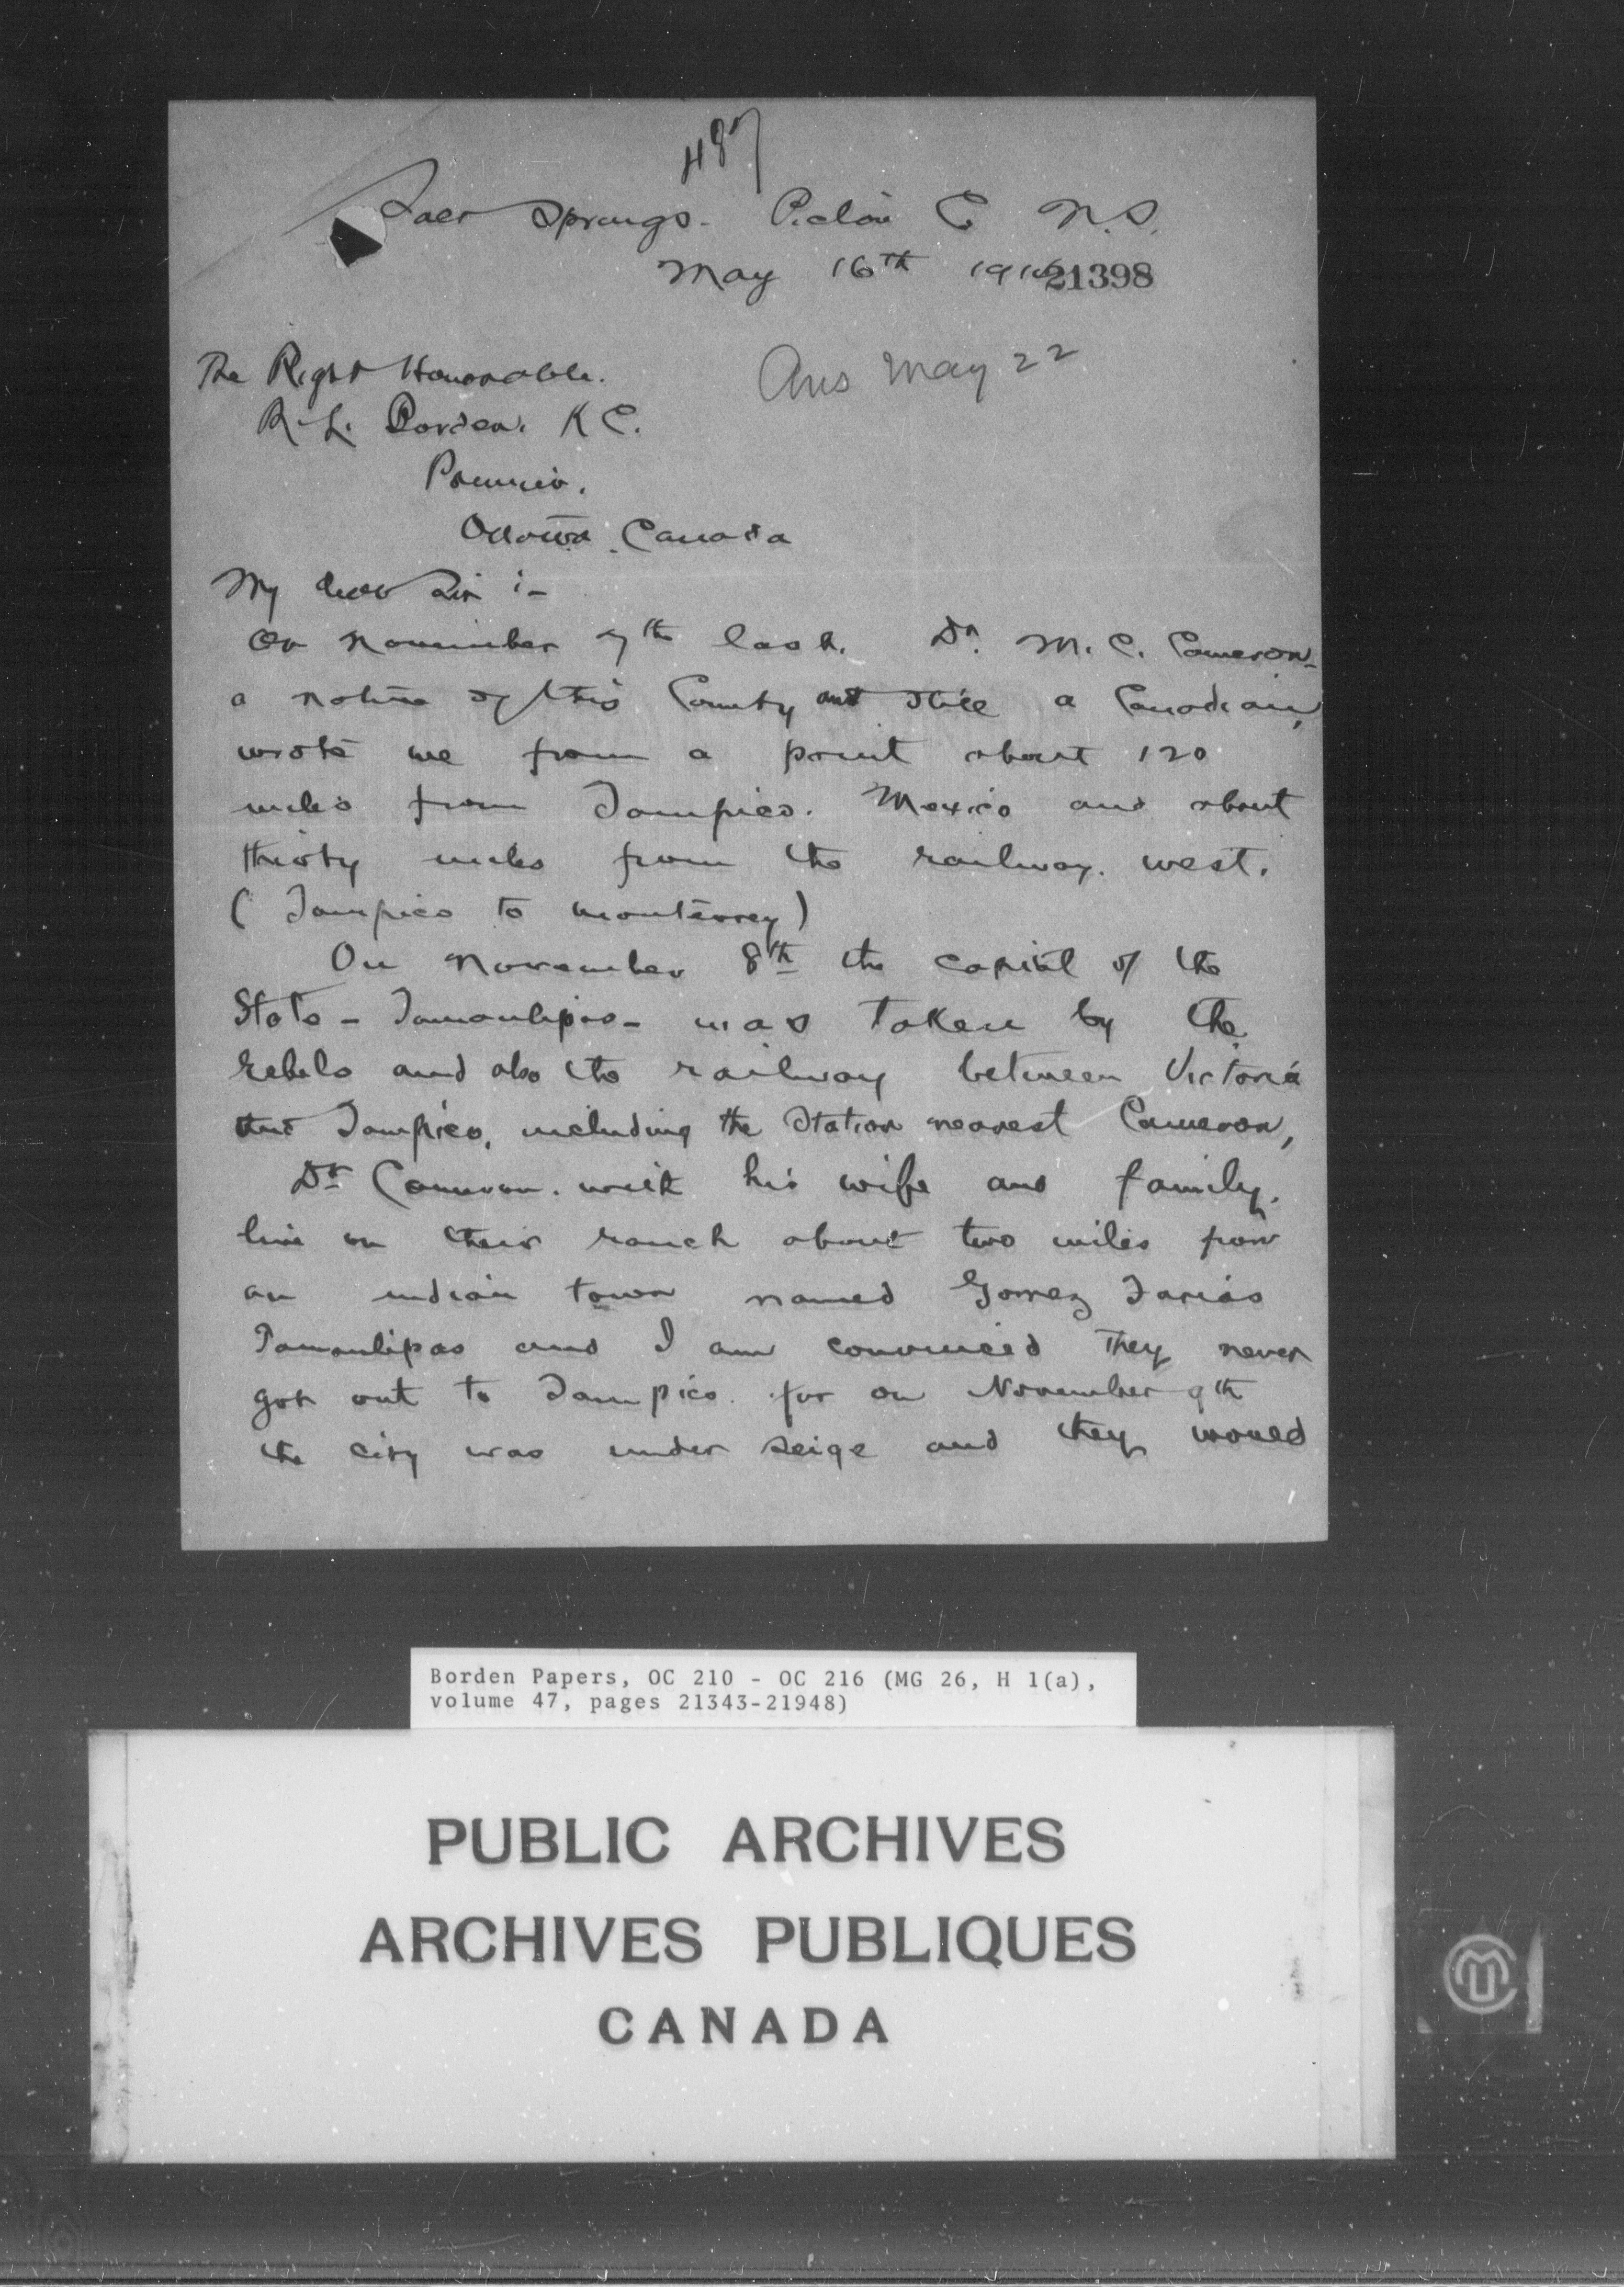 487
Salt Springs. Pictou Co N.S.
May 16th 1914
21398
Ans May 22
The Right Honorable.
R. L. Borden. K C.
Premier.
Ottawa. Canada
My dear Sir :-
On November 7th last. Dr. M. C. Cameron-
a native of this County and still a Canadian,
wrote me from a point about 120
miles from Tampico. Mexico and about
thirty miles from the railway. west.
(Tampico to Monterrey)
On November 8th the capital of the
State - Tamaulipas - was taken by the
rebels and also the railway between Victoria
and Tampico, including the Station nearest Cameron,
Dr Cameron. with his wife and family.
live on their ranch about two miles from
an indian town named Gomez Farias
Tamaulipas and I am convinced they never
got out to Tampico. for on November 9th
the city was under seige and they would
Borden Papers, OC 210 - OC 216 (MG 26, H 1(a),
volume 47, pages 21343-21948)
PUBLIC ARCHIVES
ARCHIVES PUBLIQUES
CANADA